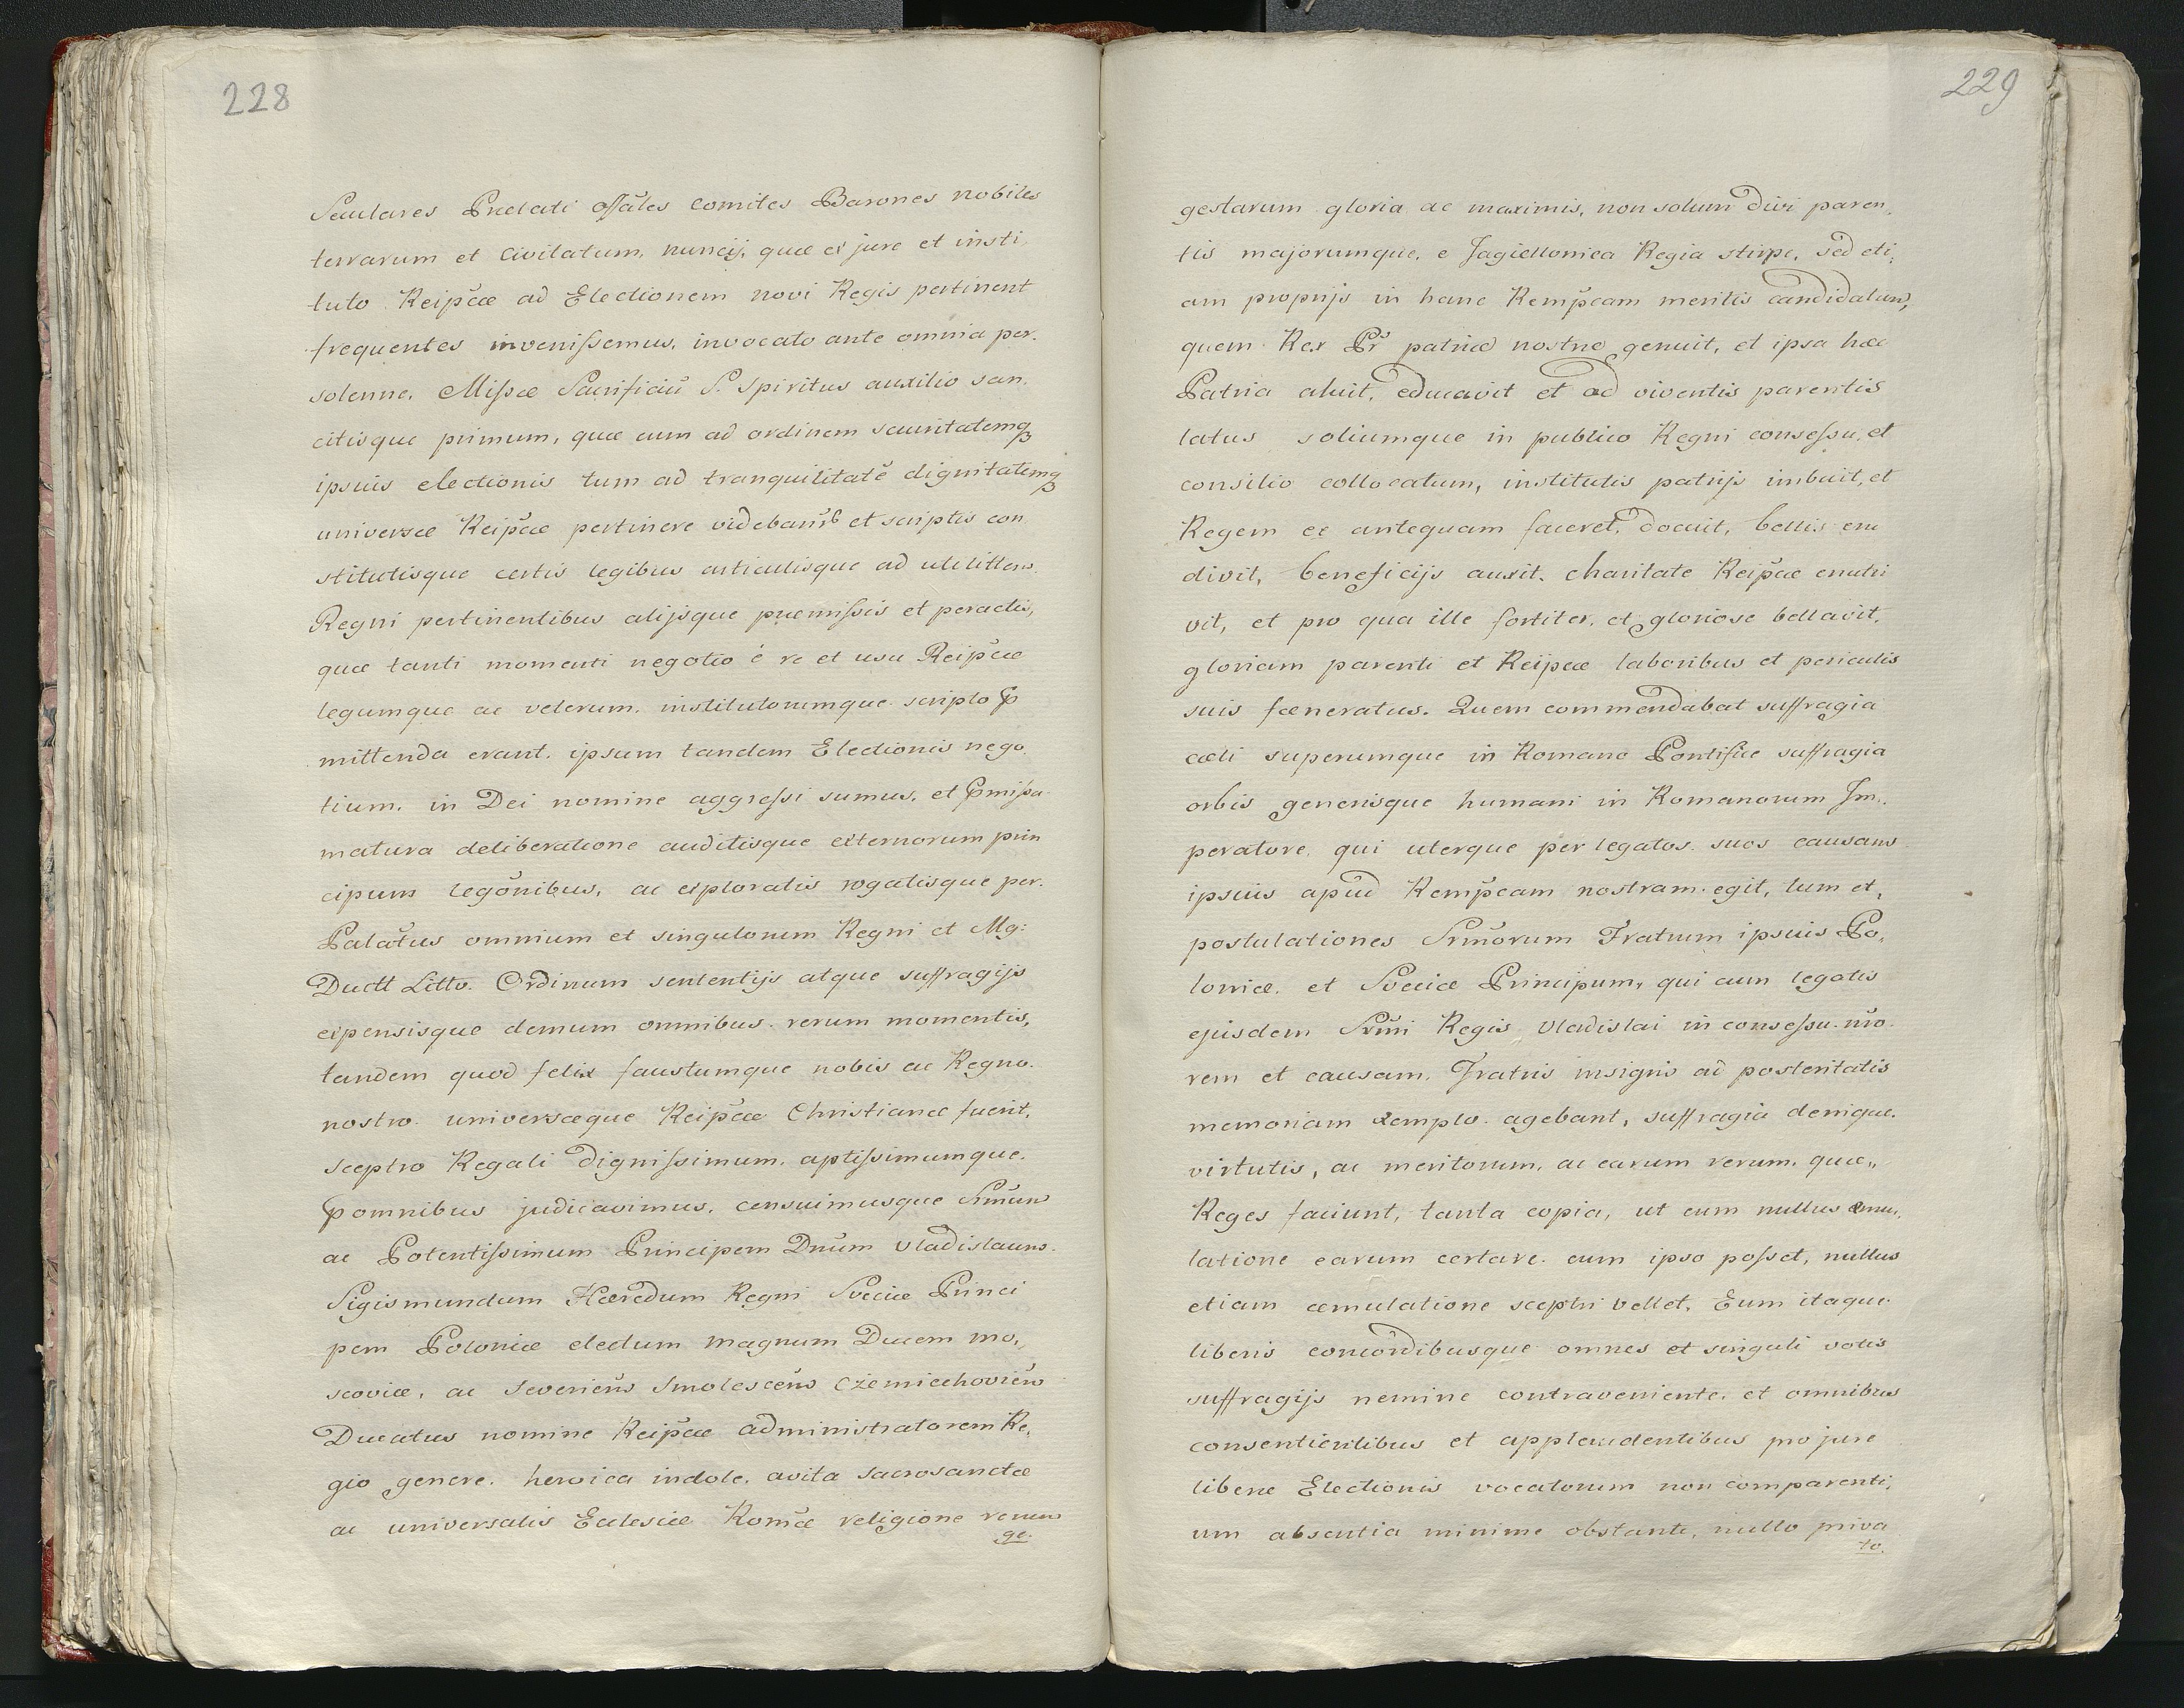 228
Seculares Prælati offāles comites Barones nobiles
terrarum et Civitatum, nuncij, quæ ex jure et insti,
tuto Reipc̃æ ad Electionem novi Regis pertinent
frequentes invenissemus, invocato ante omnia per.
solenne. Missæ Sacrificiū S. Spiritus auxilio san,
citisque primum, quæ cum ad ordinem securitatemqꝫ
ipsius electionis tum ad tranquilitatē dignitatemqꝫ
universæ Reipc̃æ pertinere videban̄r et scriptis con
stitutisque certis legibus articulisque ad utilittem
Regni pertinentibus alijsque præmissis et peractis,
quæ tanti momenti negotio é re et usu Reipc̃æ
legumque ac veterum. institutorumque scripto ꝑ
mittenda erant. ipsum tandem Electionis nego
tium. in Dei nomine aggressi sumus, et ꝑmissa
matura deliberatione auditisque externorum prin
cipum legōnibus, ac exploratis rogatisque per.
Palātus omnium et singulorum Regni et Mg:
Ductt Litto. Ordinum sententijs atque suffragijs
expensisque demum omnibus. rerum momentis,
tandem quod felix faustumque nobis ac Regno.
nostro. universæque Reipc̃æ Christianæ fuerit,
sceptro Regali dignissimum. aptissimumque.
ꝑ omnibus judicavimus. censuimusque Srmūm
ac Potentissimum Principem Dnūm Vladislaum.
Sigismundum Hæredum Regni Sveciæ Princi
pem Poloniæ electum magnum Ducem mo,
scoviæ, ac Severieñs Smolesceñs Czerniechovieñs
Ducatus nomine Reipc̃æ administratorem Re,
gio genere. heroica indole. avita sacrosanctæ
ac universalis Ecclesiæ Romæ religione rerum
ge.
229
gestarum gloria ac maximis, non solum divi paren,
tis majorumque, e Jagiellonica Regia stirpe, sed eti,
am proprijs in hanc Rempc̃am meritis candidatum,
quem Rex Pr̃ patriæ nostræ genuit, et ipsa hæc
Patria aluit, educavit et ad viventis parentis
latus soliumque in publico Regni consessu, et
consilio collocatum, institutis patrijs imbuit, et
Regem ee antequam faceret, docuit, bellis eru
divit, beneficijs auxit. charitate Reipc̃æ enutri
vit, et pro qua ille fortiter, et gloriose bellavit,
gloriam parenti et Reipcæ laboribus et periculis
suis fœneratus. Quem commendabat suffragia
cœli superumque in Romano Pontifice suffragia
orbis generisque humani in Romanorum Im,
peratore. qui uterque per legatos. suos causam
ipsius apud Rempc̃am nostram egit, tum et,
postulationes Srmōrum Fratrum ipsius Po,
loniæ. et Sveciæ Principum, qui cum legatis
ejusdem Srmi Regis Vladislai in consessu. nro.
rem et causam. Fratris insigni ad posteritatis
memoriam exemplo. agebant, suffragia denique.
virtutis, ac meritorum, ac earum rerum. quæ,,
Reges faciunt, tanta copia, ut cum nullus æmu,
latione earum certare. cum ipso posset, nullus
etiam æmulatione sceptri vellet, Eum itaque.
liberis concordibusque omnes et singuli votis
suffragijs nemine contraveniente. et omnibus
consentientibus et applaudentibus pro jure
liberæ Electionis vocatorum non comparenti,
um absentia minime obstante, nullo priva
to.